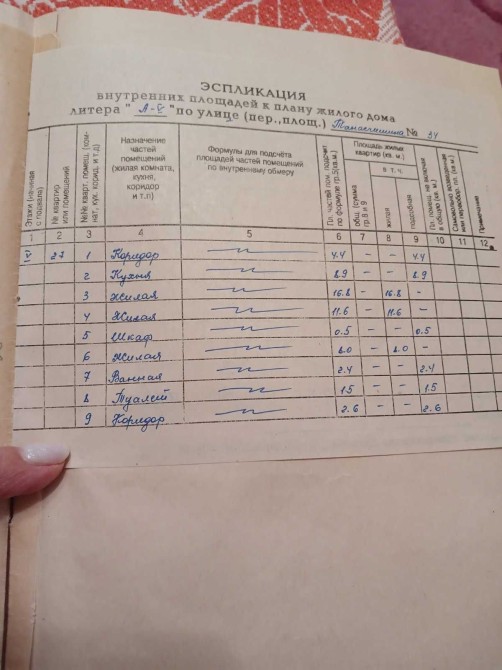 ЭСПЛИКАЦИЯ
внутренних площадей к плану жилого дома
литера " А-V " по улице (пер.,площ.) № 34
Этажи (начиная с подвала)
№ квартир или помещений
№№ кварт. помещ. (комнат, кух. корид. и т.д)
Назначение частей помещений (жилая комната, кухня, коридор и т.п)
Формулы для подсчёта площадей частей помещений по внутреннему обмеру
Пл. частей пом. подсчит по формуле гр.5(кв.м.)
Площадь жилых квартир (кв. м.)
в т. ч.
общ. (сумма гр.8 и 9
жилая
подсобная
Пл. помещ. не включая в общую (кв. м.)
Самовольно возведенная или переобор. пл. (кв.м)
Примечание
1 2 3 4 5 6 7 8 9 10 11 12
27 1 Коридор 4.4 – – 4.4
2 Кухня 8.9 – – 8.9
3 Жилая 16.8 – 16.8 –
4 Жилая 11.6 – 11.6 –
5 Шкаф 0.5 – – 0.5
6 Жилая 8.0 – 8.0 –
7 Ванная 2.4 – – 2.4
8 Туалет 1.5 – – 1.5
9 Коридор 2.6 – – 2.6